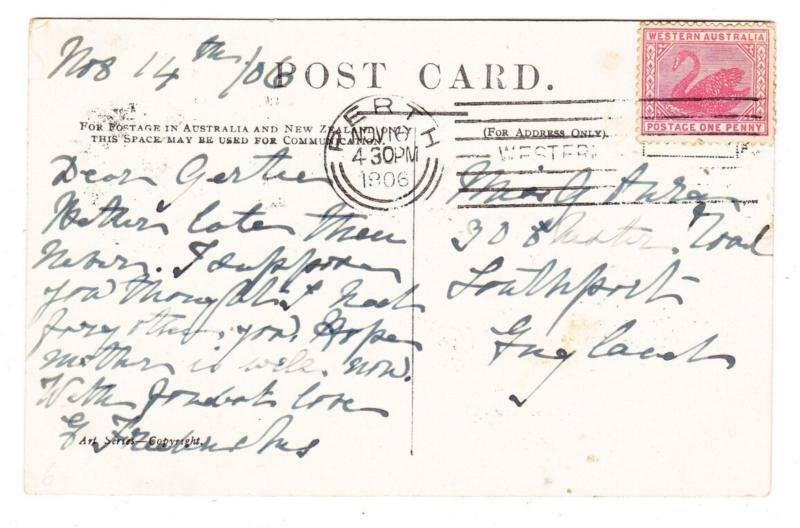 Nov 14th /06
POST CARD.
WESTERN AUSTRALIA
POSTAGE ONE PENNY
FOR POSTAGE IN AUSTRALIA AND NEW ZEALAND ONLY
THIS SPACE MAY BE USED FOR COMMUNICATION.
(FOR ADDRESS ONLY).
PERTH
4 30PM
1906
WESTERN
Dear Gertie
Better late then
Never. I suppose
you thought I had
forgotten you. Hope
mother is well now.
With fondest love
Art Series—Copyright.
Miss
Road
Southport
England